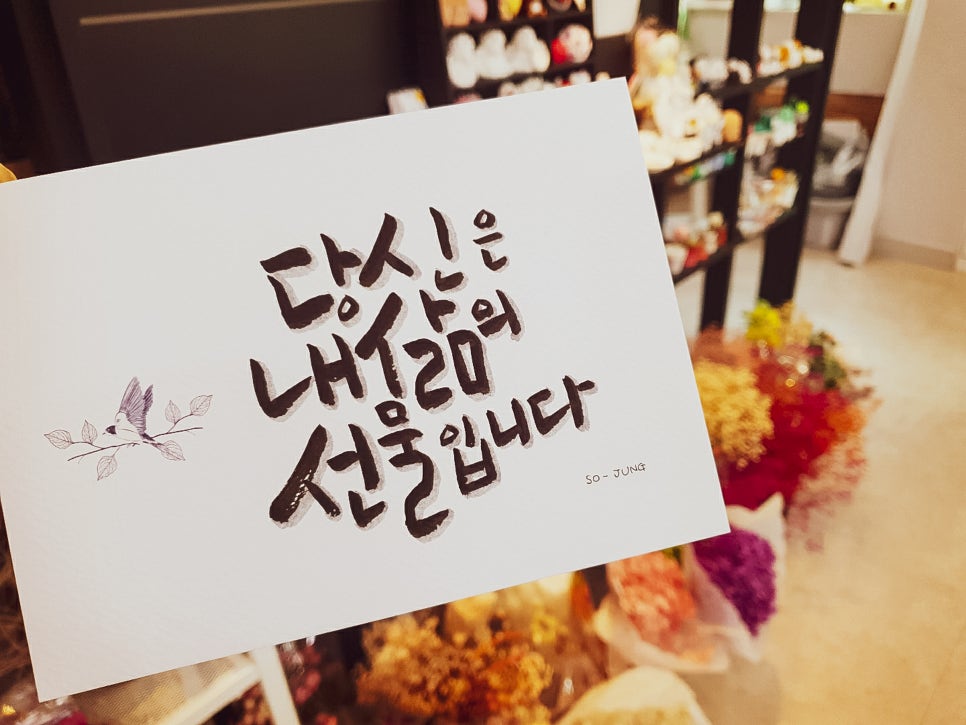 당신은
내 삶의
선물입니다
SO-JUNG